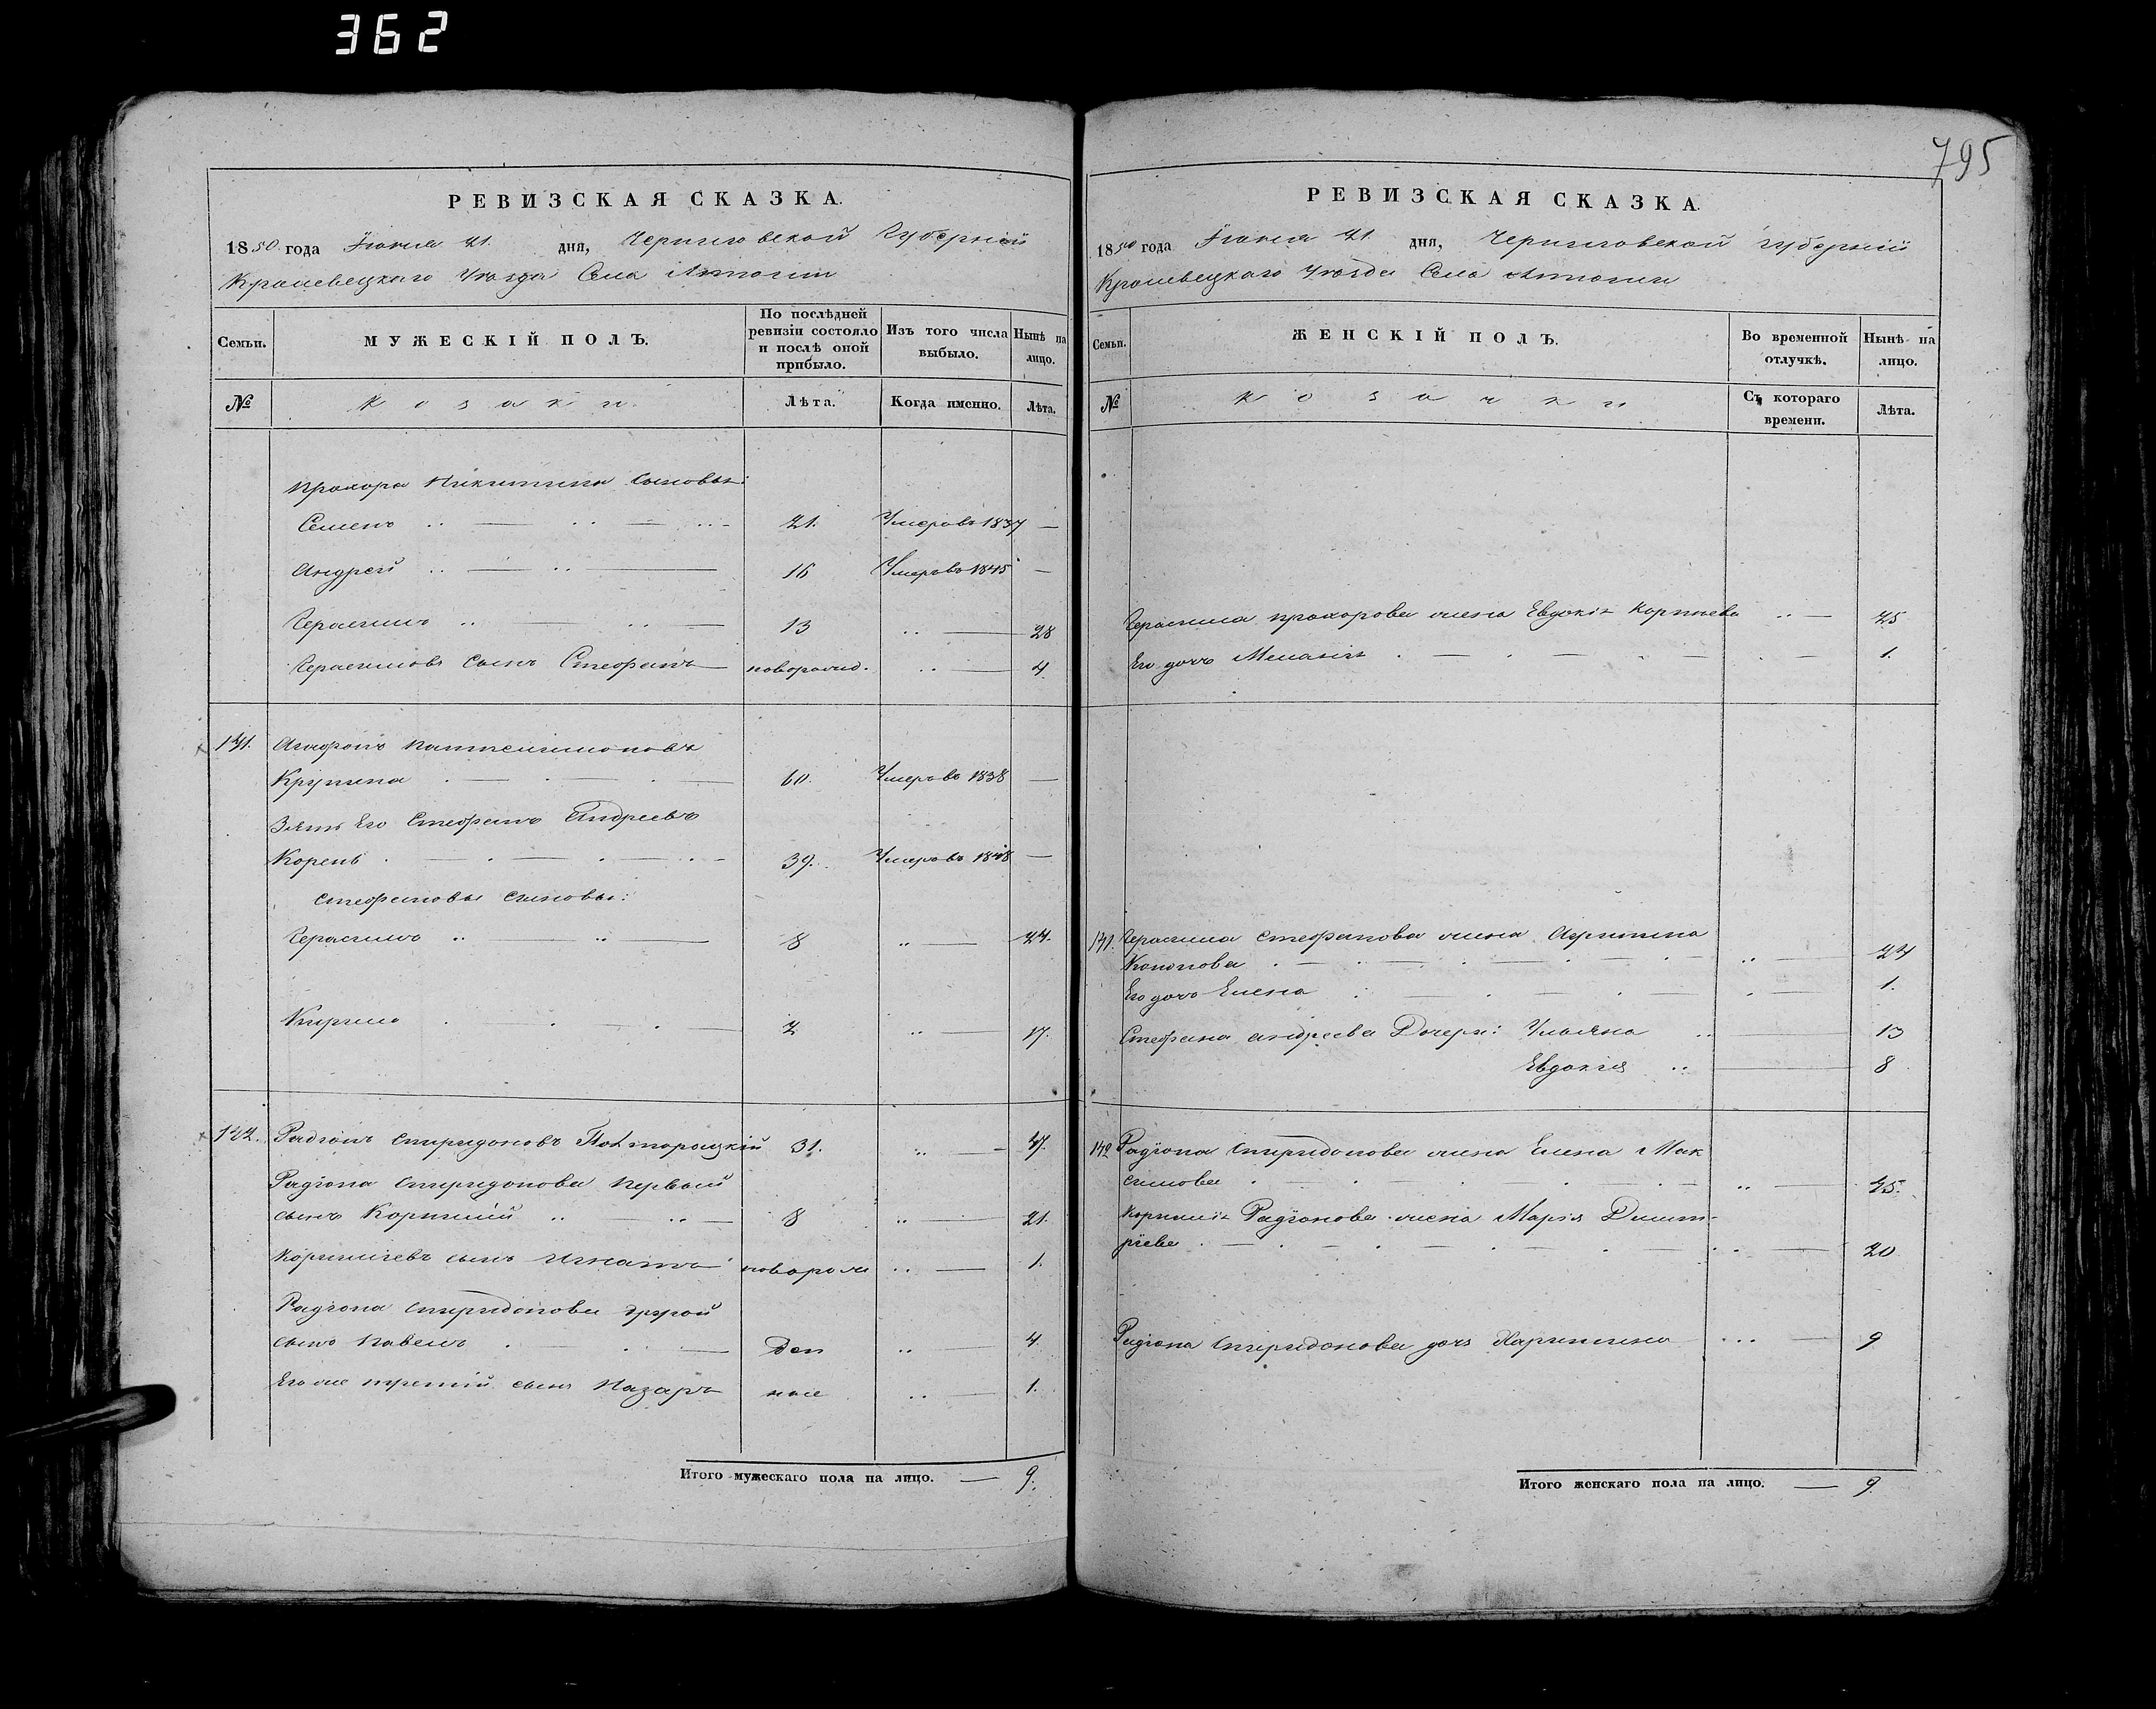 362
795
РЕВИЗСКАЯ СКАЗКА.
1850 года Іюня 21 дня, Черниговской Губерніи
Кролевецкаго Уезда Села
Семьи.
МУЖЕСКІЙ ПОЛЪ.
По послѣдней ревизіи состояло и послѣ оной прибыло.
Изъ того числа выбыло.
Нынѣ на лицо.
№
Козаки
Лѣта.
Когда именно.
Лѣта.
Прохора Никитина сыновья:
Семенъ 21. Умеръ въ 1837 —
Андрей 16 Умеръ въ 1845 —
Герасимъ 13 — 28
Герасимовъ сынъ Стефанъ новорожд. — 4
141. Агафонъ Пантелимоновъ
60. Умеръ въ 1838 —
Зять Его Стефанъ Андреевъ
Корень 39. Умеръ въ 1848 —
Стефановы сыновья:
Герасимъ 8 — 24.
Кирило 2 — 17.
142. Радіонъ Спиридоновъ 31. — 47.
Радіона Спиридонова первый
сынъ Корнилий 8 — 21.
Корнилиевъ сынъ Игнатъ новорож — 1.
Радіона Спиридонова другой
сынъ Павелъ ден — 4.
Его же третий сынъ Назаръ ные — 1.
Итого мужескаго пола на лицо. — 9.
РЕВИЗСКАЯ СКАЗКА.
1850 года Іюня 21 дня, Черниговской губерніи
Кролевецкаго Уезда Села
Семьи.
ЖЕНСКІЙ ПОЛЪ.
Во временной отлучкѣ.
Нынѣ на лицо.
№
Козачки
Съ котораго времени.
Лѣта.
Герасима Прохорова жена Евдокія Корнева — 25
Его дочь Меланія — 1.
141. Герасима Стефанова жена
Кононова — 24
Его дочь Елена — 1.
Стефана Андреева Дочери: Ульяна — 13
Евдокия — 8
142 Радіона Спиридонова жена Елена Мак
симова — 45.
Корнилія Радіонова жена Марія Димит-
ріева — 20
Радіона Спиридонова дочь Харитина — 9
Итого женскаго пола на лицо. — 9.